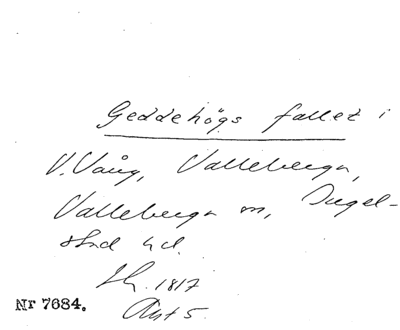 Geddehögs fallet i
V. Vång, Valleberga,
Valleberga sn, Ingel-
stad hd.
Sk. 1817
Akt 5.
Nr 7684.